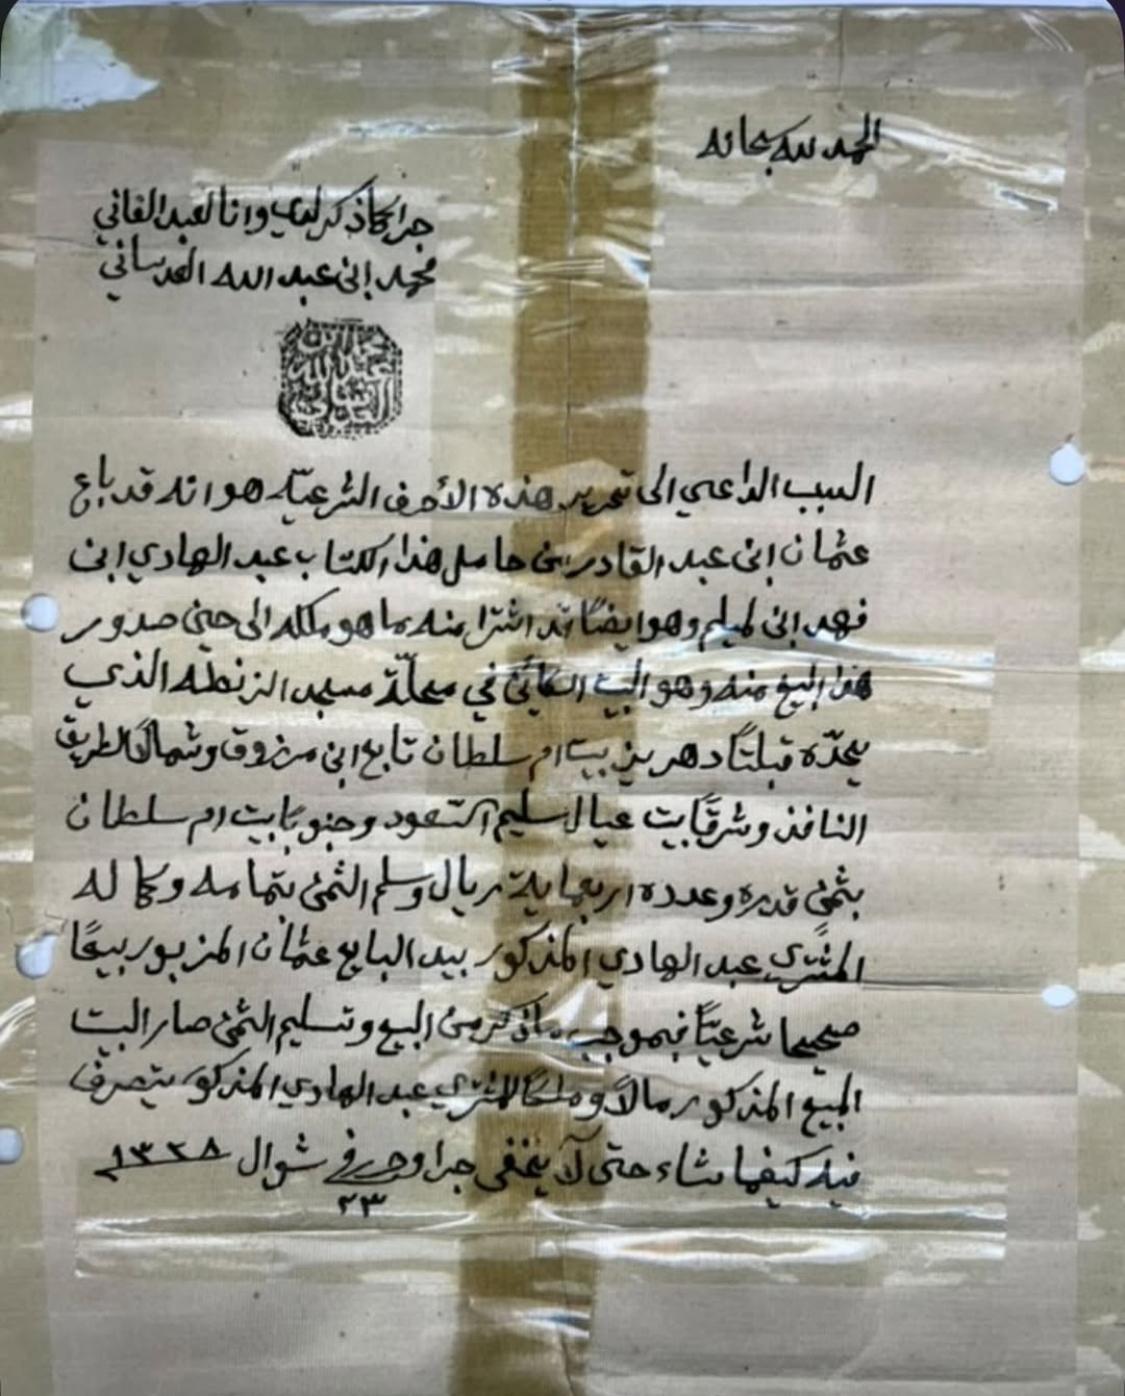 الحمد لله سبحانه
جرا كما ذكر لدي وانا العبد الفاني
محمد ابن عبد الله العدساني
السبب الداعي الى تحرير هذه الأحرف الشرعيّه هو انه قد باع
عثمان ابن عبد القادر ابن حامل هذا الكتاب عبد الهادي ابن
فهد ابن لميلم وهو ايضًا قد اشترا منه ما هو ملكه الى حين صدور
هذا البيع منه وهو البيت الكائن في محلّة مسجد الزنطه الذي
يحدّه قبلتًا دهريز بيت ام سلطان تابع ابن مرزوق وشمالًا الطريق
النافذ وشرقًا بيت عيال سليم السعود وجنوبًا بيت ام سلطان
بثمن قدره وعدده اربعماية ريال وسلم الثمن بتمامه وكماله
المشتري عبد الهادي المذكور بيد البايع عثمان المزبور بيعًا
صحيحا شرعيًّا فبموجب ماذكر من البيع وتسليم الثمن صار البيت
المبيع المذكور مالًا وملكًا للمشتري عبد الهادي المذكور يتصرف
فيه كيفما شاء حتى لا يخفى جرا وحرر في شوال ١٣٢٨
٢٣